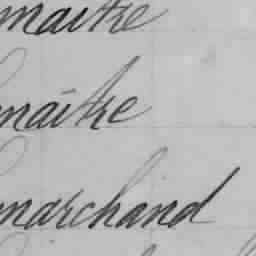 maitre
maitre
marchand